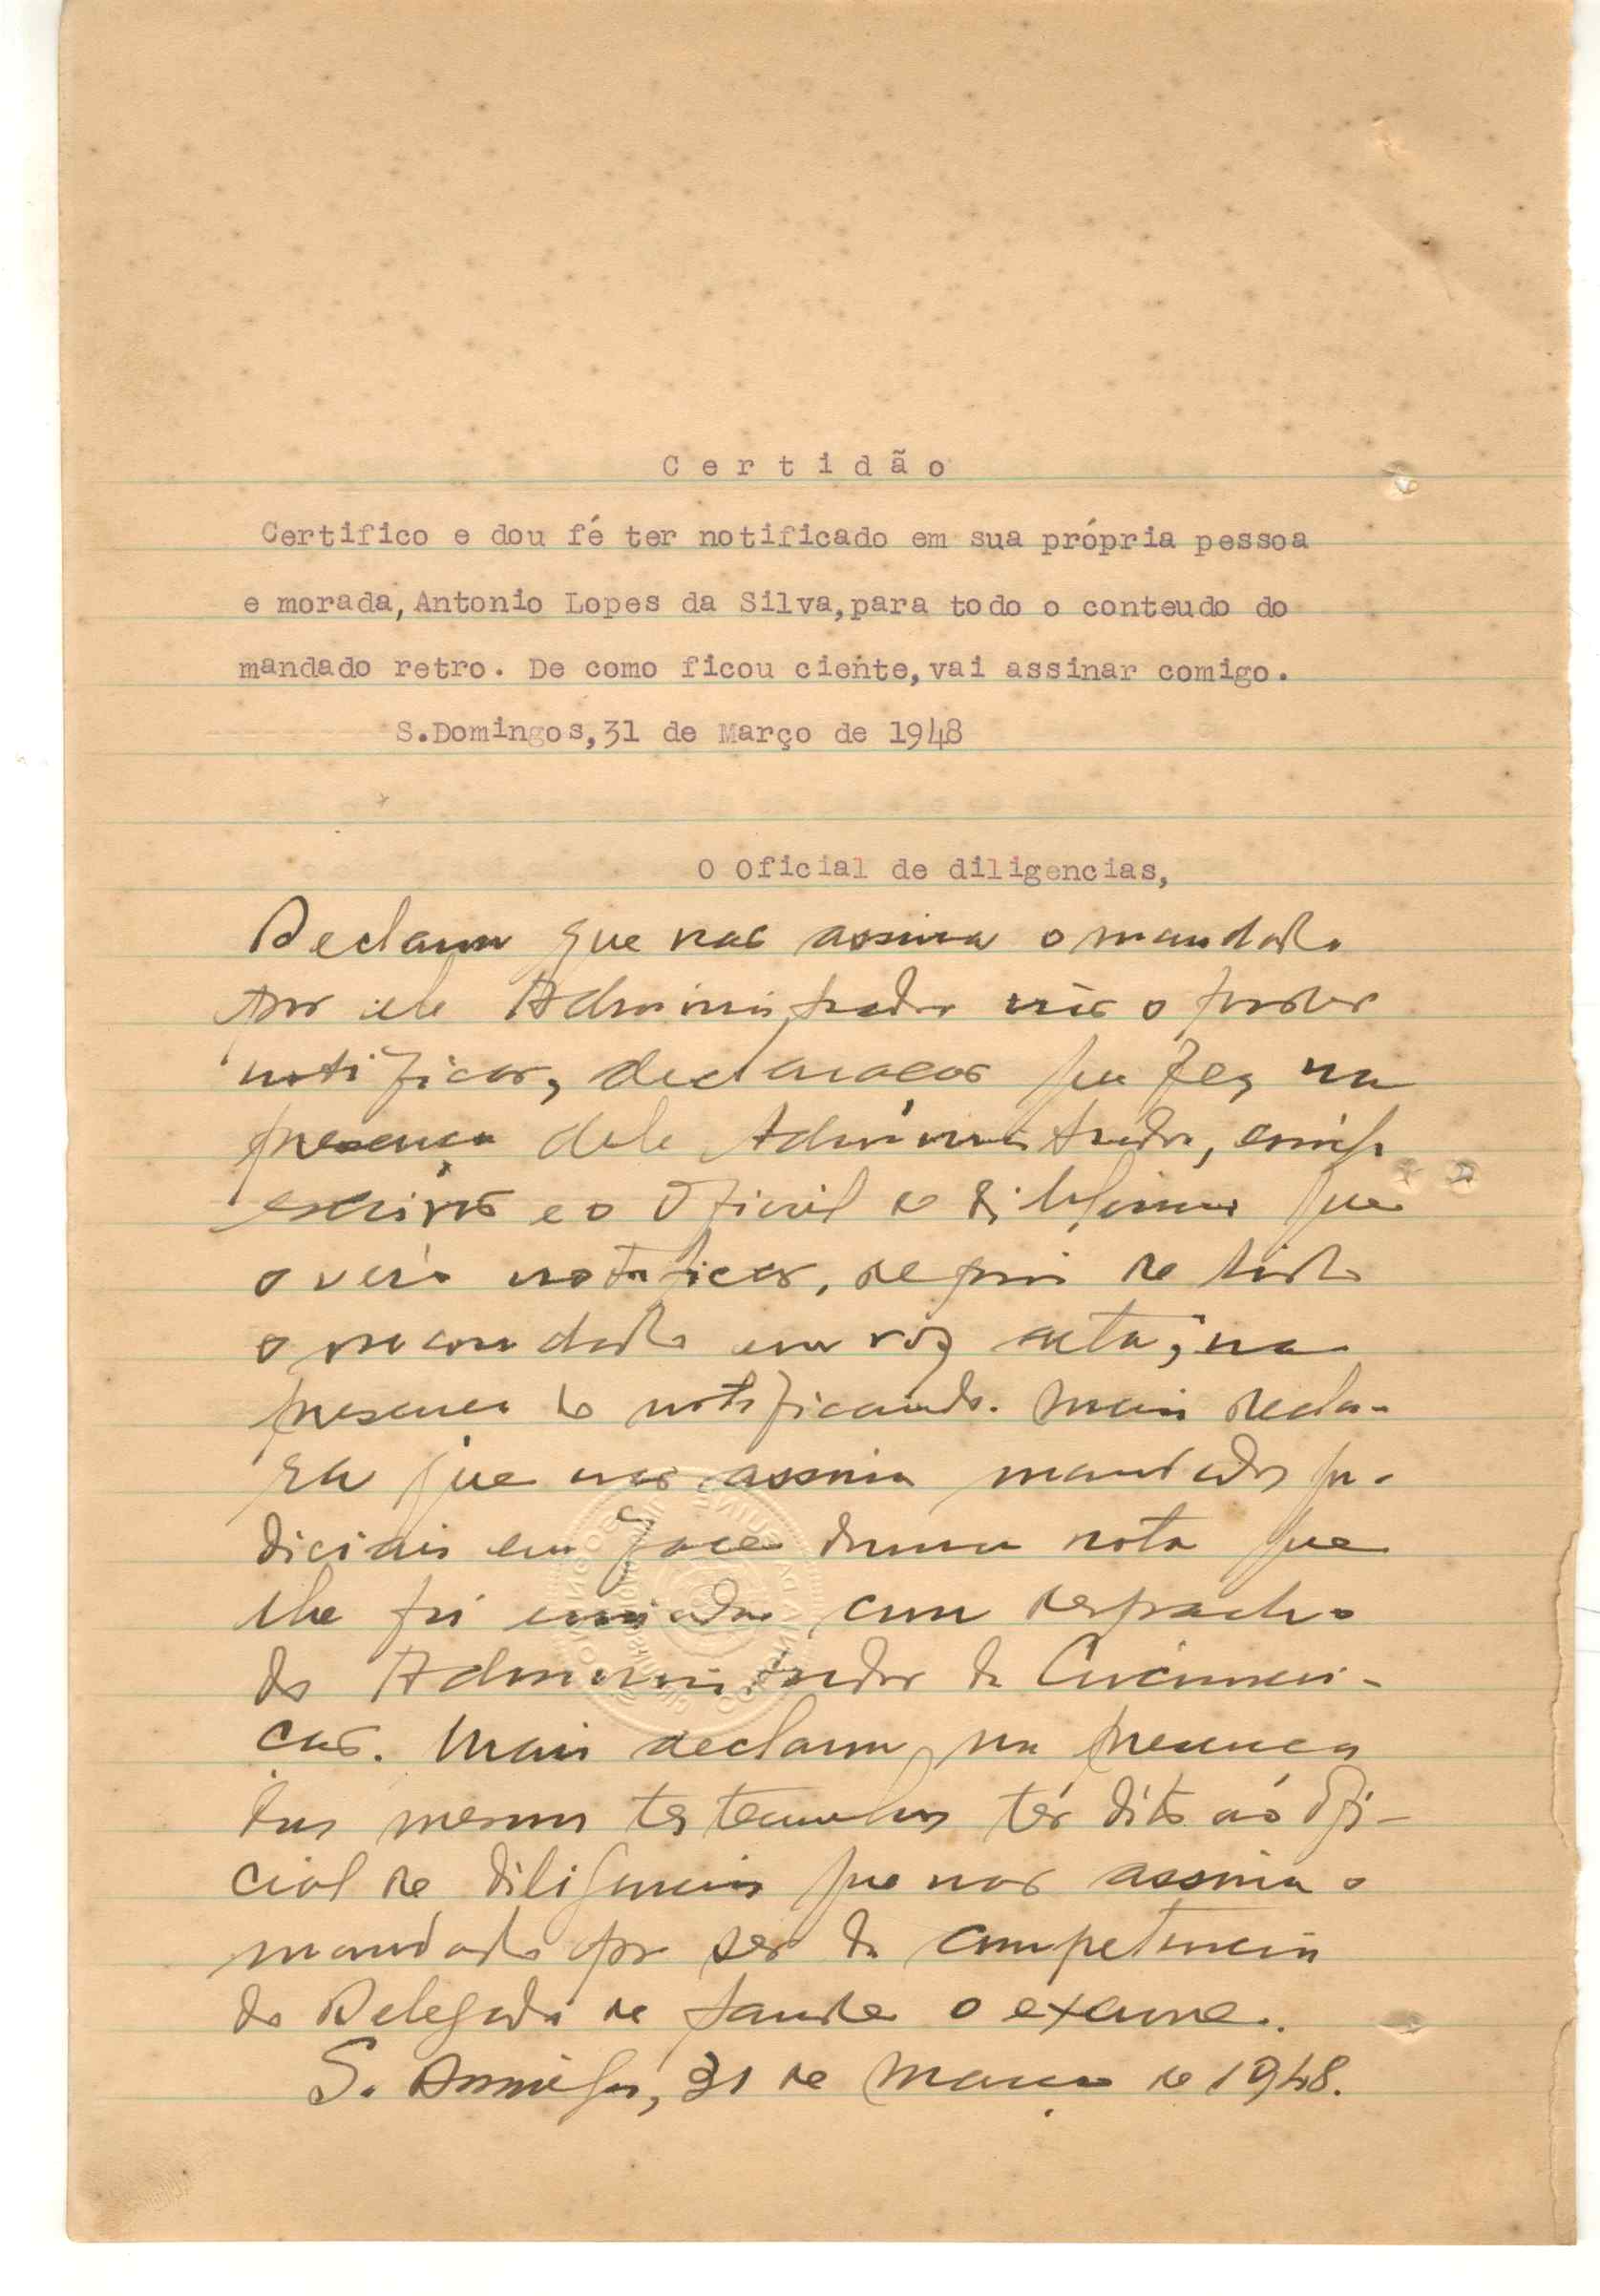 Certidão
Certifico e dou fé ter notificado em sua própria pessoa
e morada, Antonio Lopes da Silva, para todo o conteudo do
mandado retro. De como ficou ciente, vai assinar comigo.
S.Domingos, 31 de Março de 1948
O Oficial de diligencias,
Declarou que não assina o mandado
por ele Administrador não o poder
notificar, declaração que fez na
presença dele Administrador,
escrivão e o Oficial de diligencias que
o veio notificar, depois de lido
o mandado em voz alta, na
presença do notificando. Mais decla-
ra que não assina mandados ju-
diciais em face duma nota que
lhe foi enviada com despacho
do Administrador de
Mais declarou na presença
das mesmas testemunhas ter dito ao Ofi-
cial de diligencias que não assina o
mandado por ser da competencia
do Delegado de Saude o exame.
S. Domingos, 31 de Março de 1948.